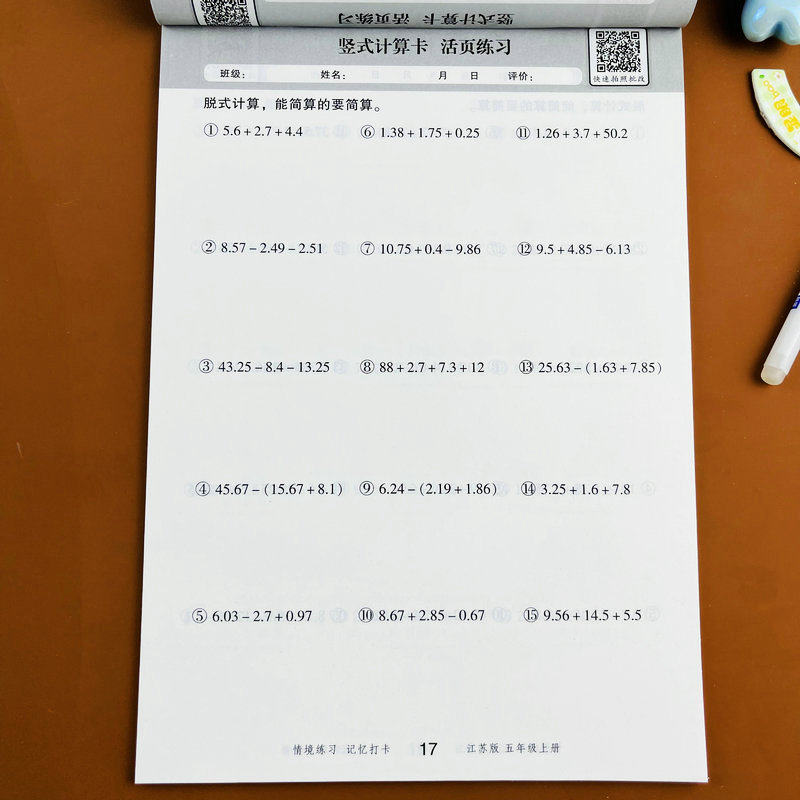 竖式计算卡 活页练习
竖式计算卡 活页练习
快速拍照批改
班级： 姓名： 月 日 评价：
脱式计算，能简算的要简算。
① 5.6+2.7+4.4 ⑥ 1.38+1.75+0.25 ⑪ 1.26+3.7+50.2
② 8.57-2.49-2.51 ⑦ 10.75+0.4-9.86 ⑫ 9.5+4.85-6.13
③ 43.25-8.4-13.25 ⑧ 88+2.7+7.3+12 ⑬ 25.63-(1.63+7.85)
④ 45.67-(15.67+8.1) ⑨ 6.24-(2.19+1.86) ⑭ 3.25+1.6+7.8
⑤ 6.03-2.7+0.97 ⑩ 8.67+2.85-0.67 ⑮ 9.56+14.5+5.5
情境练习 记忆打卡 17 江苏版 五年级上册